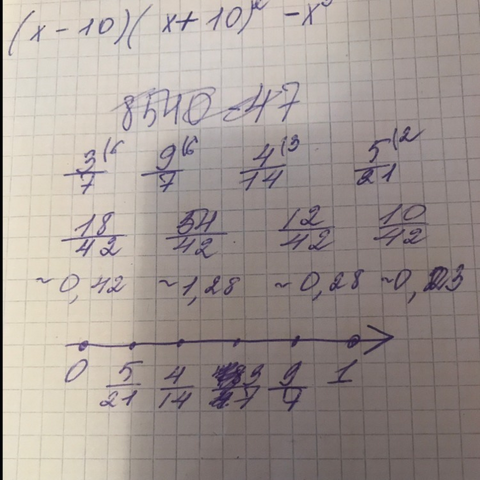 (x - 10)(x + 10)² - x³
8540 - 47
3/7 (6 9/7 (6 4/14 (3 5/21 (2
18/42 54/42 12/42 10/42
~0,42 ~1,28 ~0,28 ~0,23
0 5/21 4/14 3/7 9/7 1